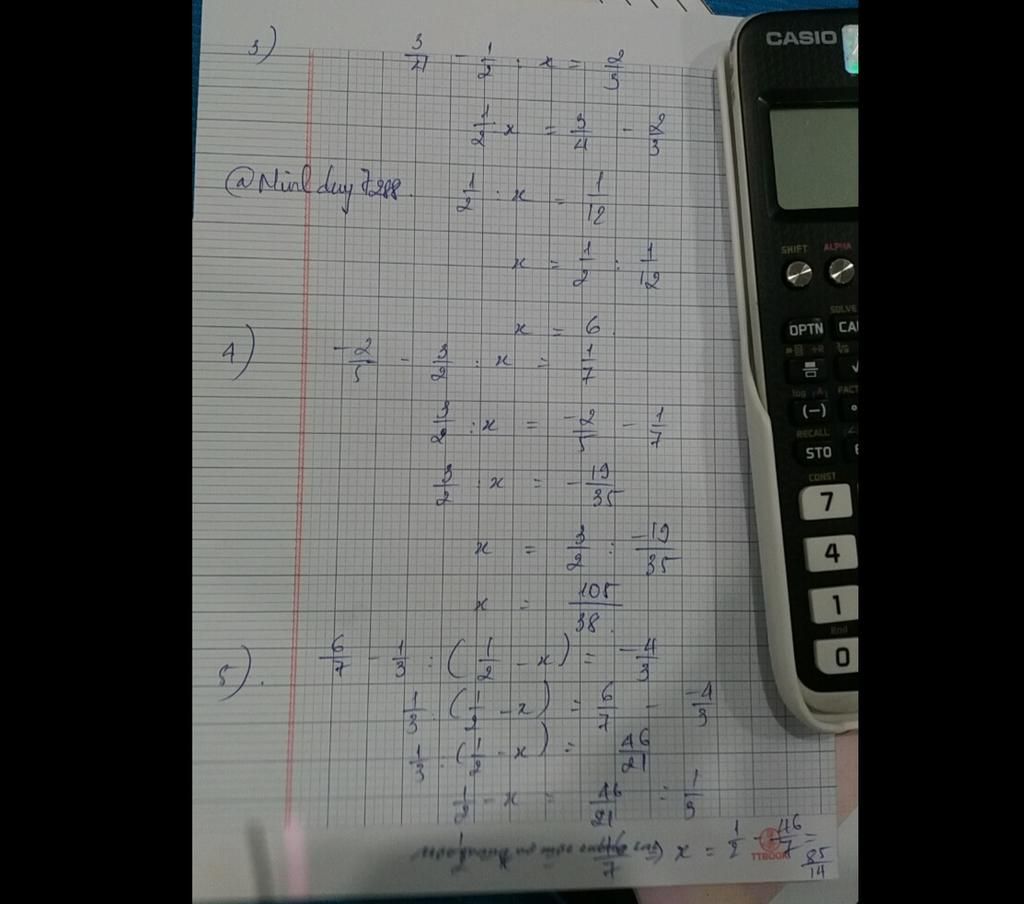 3) 3/4 - 1/2 : x = 2/3
1/2 x = 3/4 - 2/3
1/2 : x = 1/12
x = 1/2 : 1/12
x = 6
4) -2/5 - 3/2 : x = 1/7
3/2 : x = -2/5 - 1/7
3/2 : x = -19/35
x = 3/2 : -19/35
x = 105/38
5) 6/7 - 1/3 : (1/2 - x) = -4/3
1/3 : (1/2 - x) = 6/7 - -4/3
1/3 : (1/2 - x) = 46/21
1/2 - x = 46/21 : 1/3
1/2 = 46/7 => x = 1/2 - 46/7 = 85/14
TTBOOK
CASIO
SHIFT ALPHA
SOLVE
OPTN
(-)
RECALL
STO
CONST
7
4
1
Rnd
0